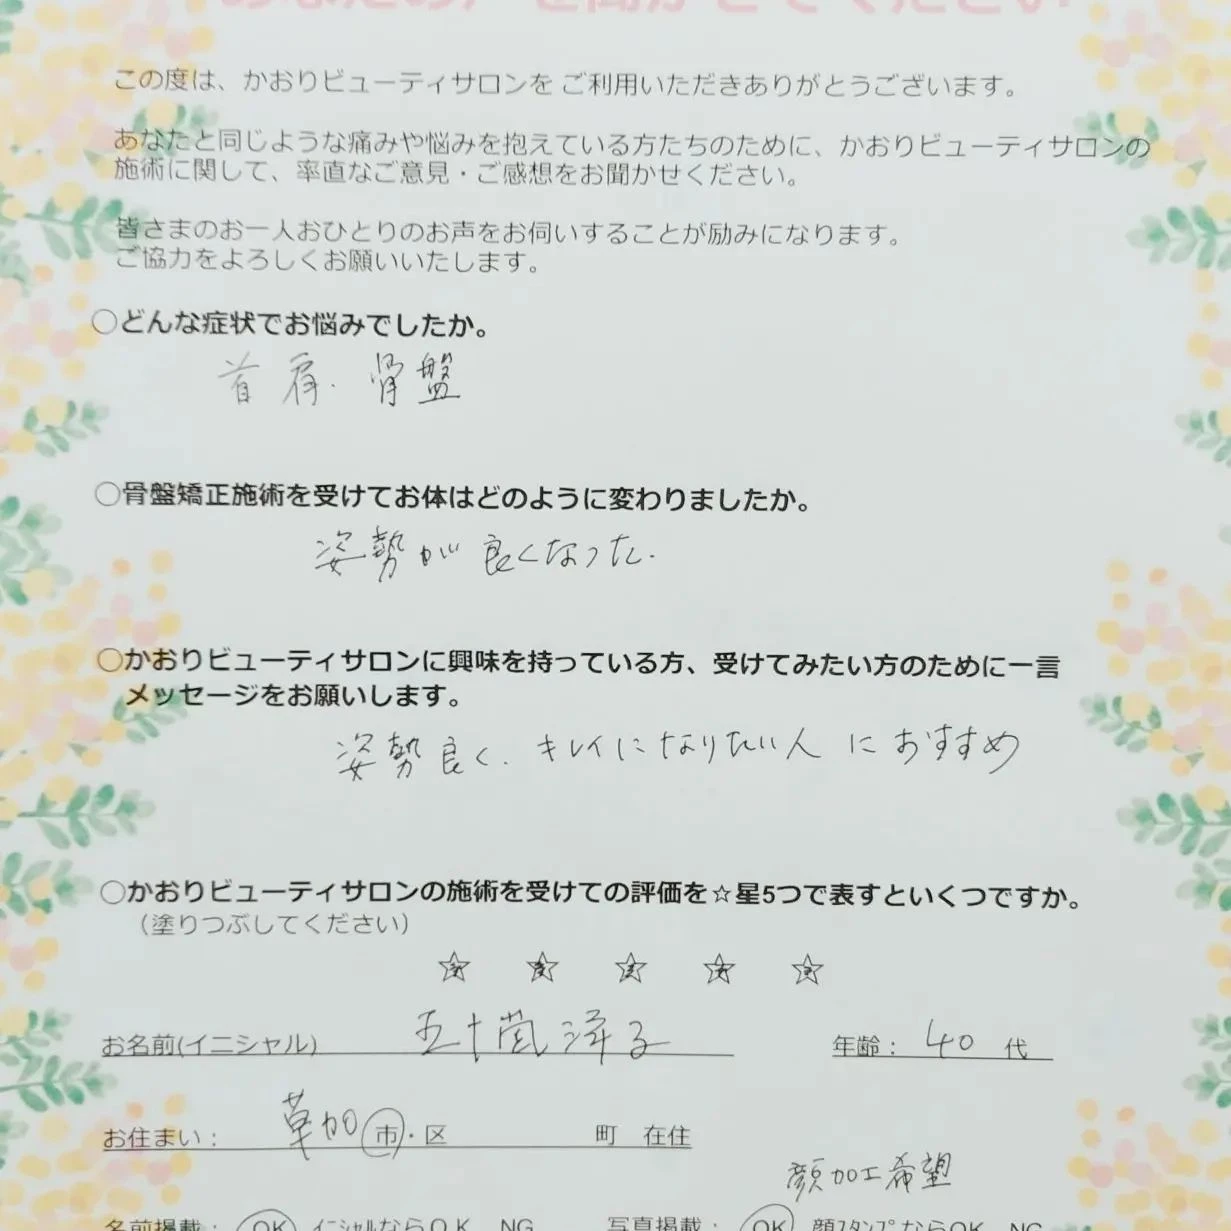 この度は、かおりビューティサロンを ご利用いただきありがとうございます。
あなたと同じような痛みや悩みを抱えている方たちのために、かおりビューティサロンの
施術に関して、率直なご意見・ご感想をお聞かせください。
皆さまのお一人おひとりのお声をお伺いすることが励みになります。
ご協力をよろしくお願いいたします。
○どんな症状でお悩みでしたか。
首 肩・骨盤
○骨盤矯正施術を受けてお体はどのように変わりましたか。
姿勢が良くなった.
○かおりビューティサロンに興味を持っている方、受けてみたい方のために一言
メッセージをお願いします。
姿勢良く、キレイになりたい人におすすめ
○かおりビューティサロンの施術を受けての評価を☆星5つで表すといくつですか。
（塗りつぶしてください）
☆ ☆ ☆ ☆ ☆
お名前(イニシャル) 五十嵐洋子 年齢： 40 代
お住まい： 草加 市・区 町 在住
顔加工希望
名前掲載： OK イニシャルならOK NG 写真掲載： OK 顔スタンプならOK NG